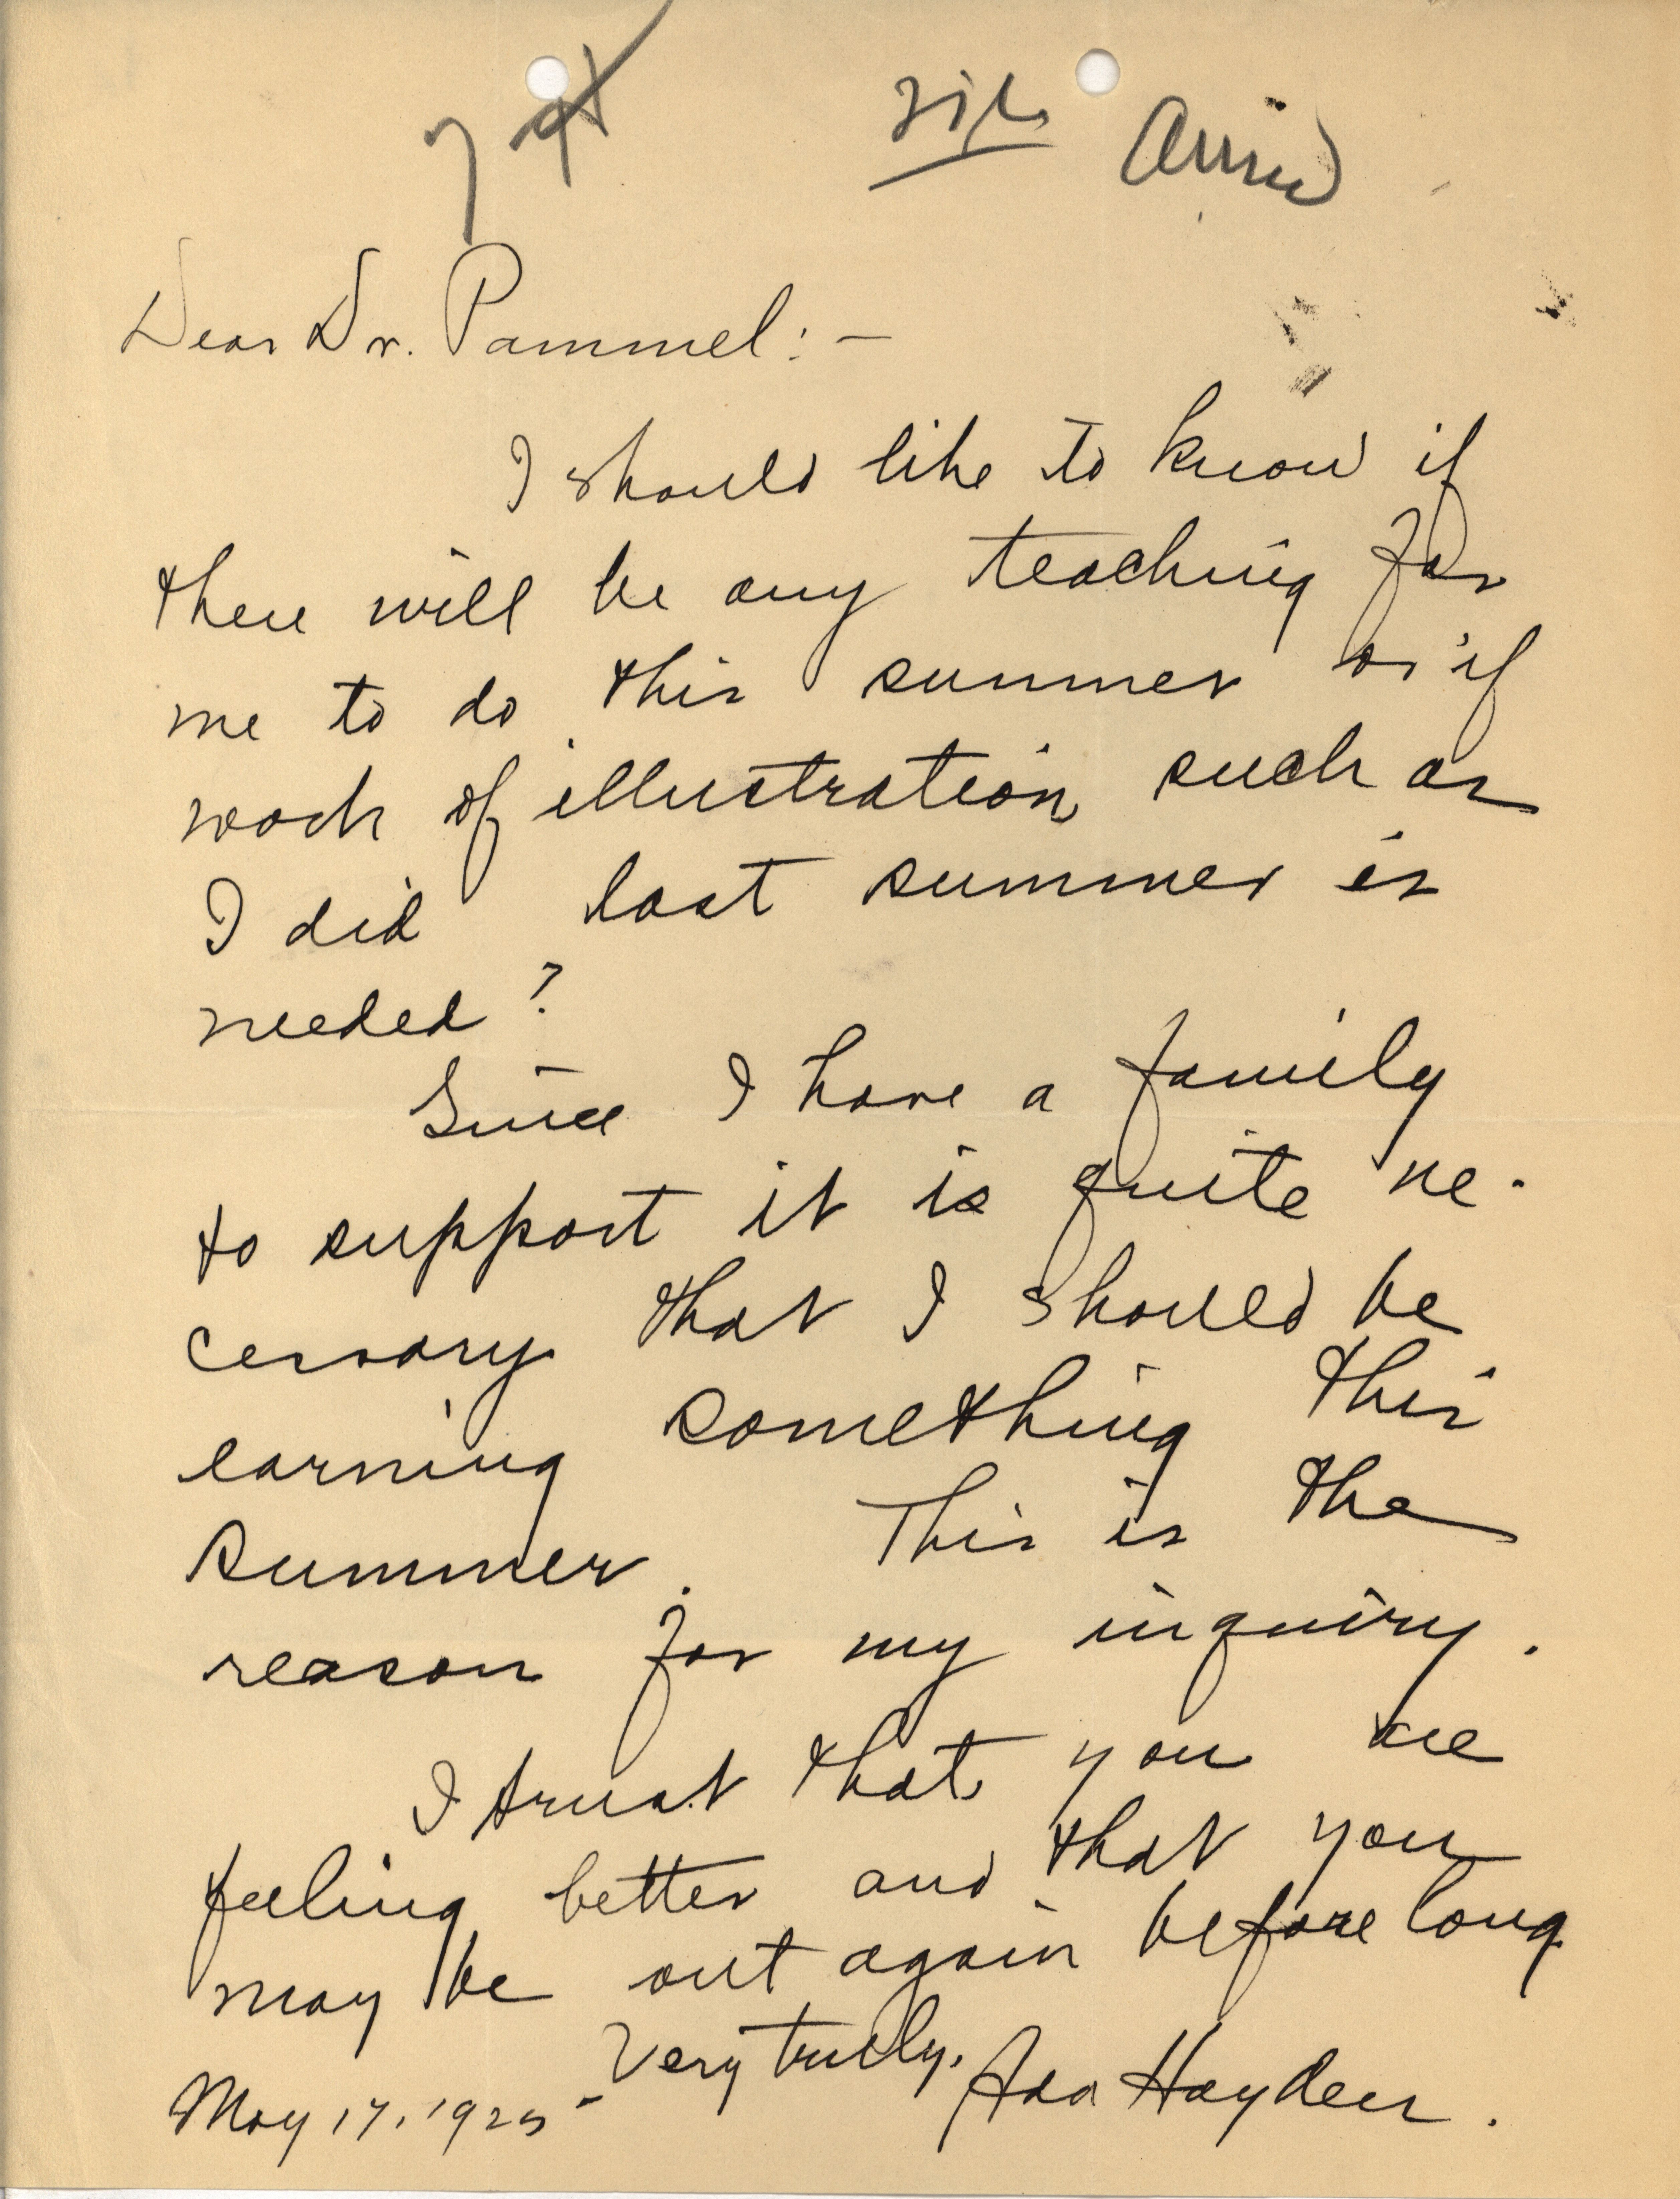 File
Dear Dr. Pammel:-
I should like to know if
there will be any teaching for
me to do this summer or if
work of illustration such as
I did last summer is
needed?
Since I have a family
to support it is quite ne-
cessary that I should be
earning something this
summer. This is the
reason for my inquiry.
I trust that you are
feeling better and that you
may be out again before long
Very truly,
Ada Hayden.
May 17, 1925